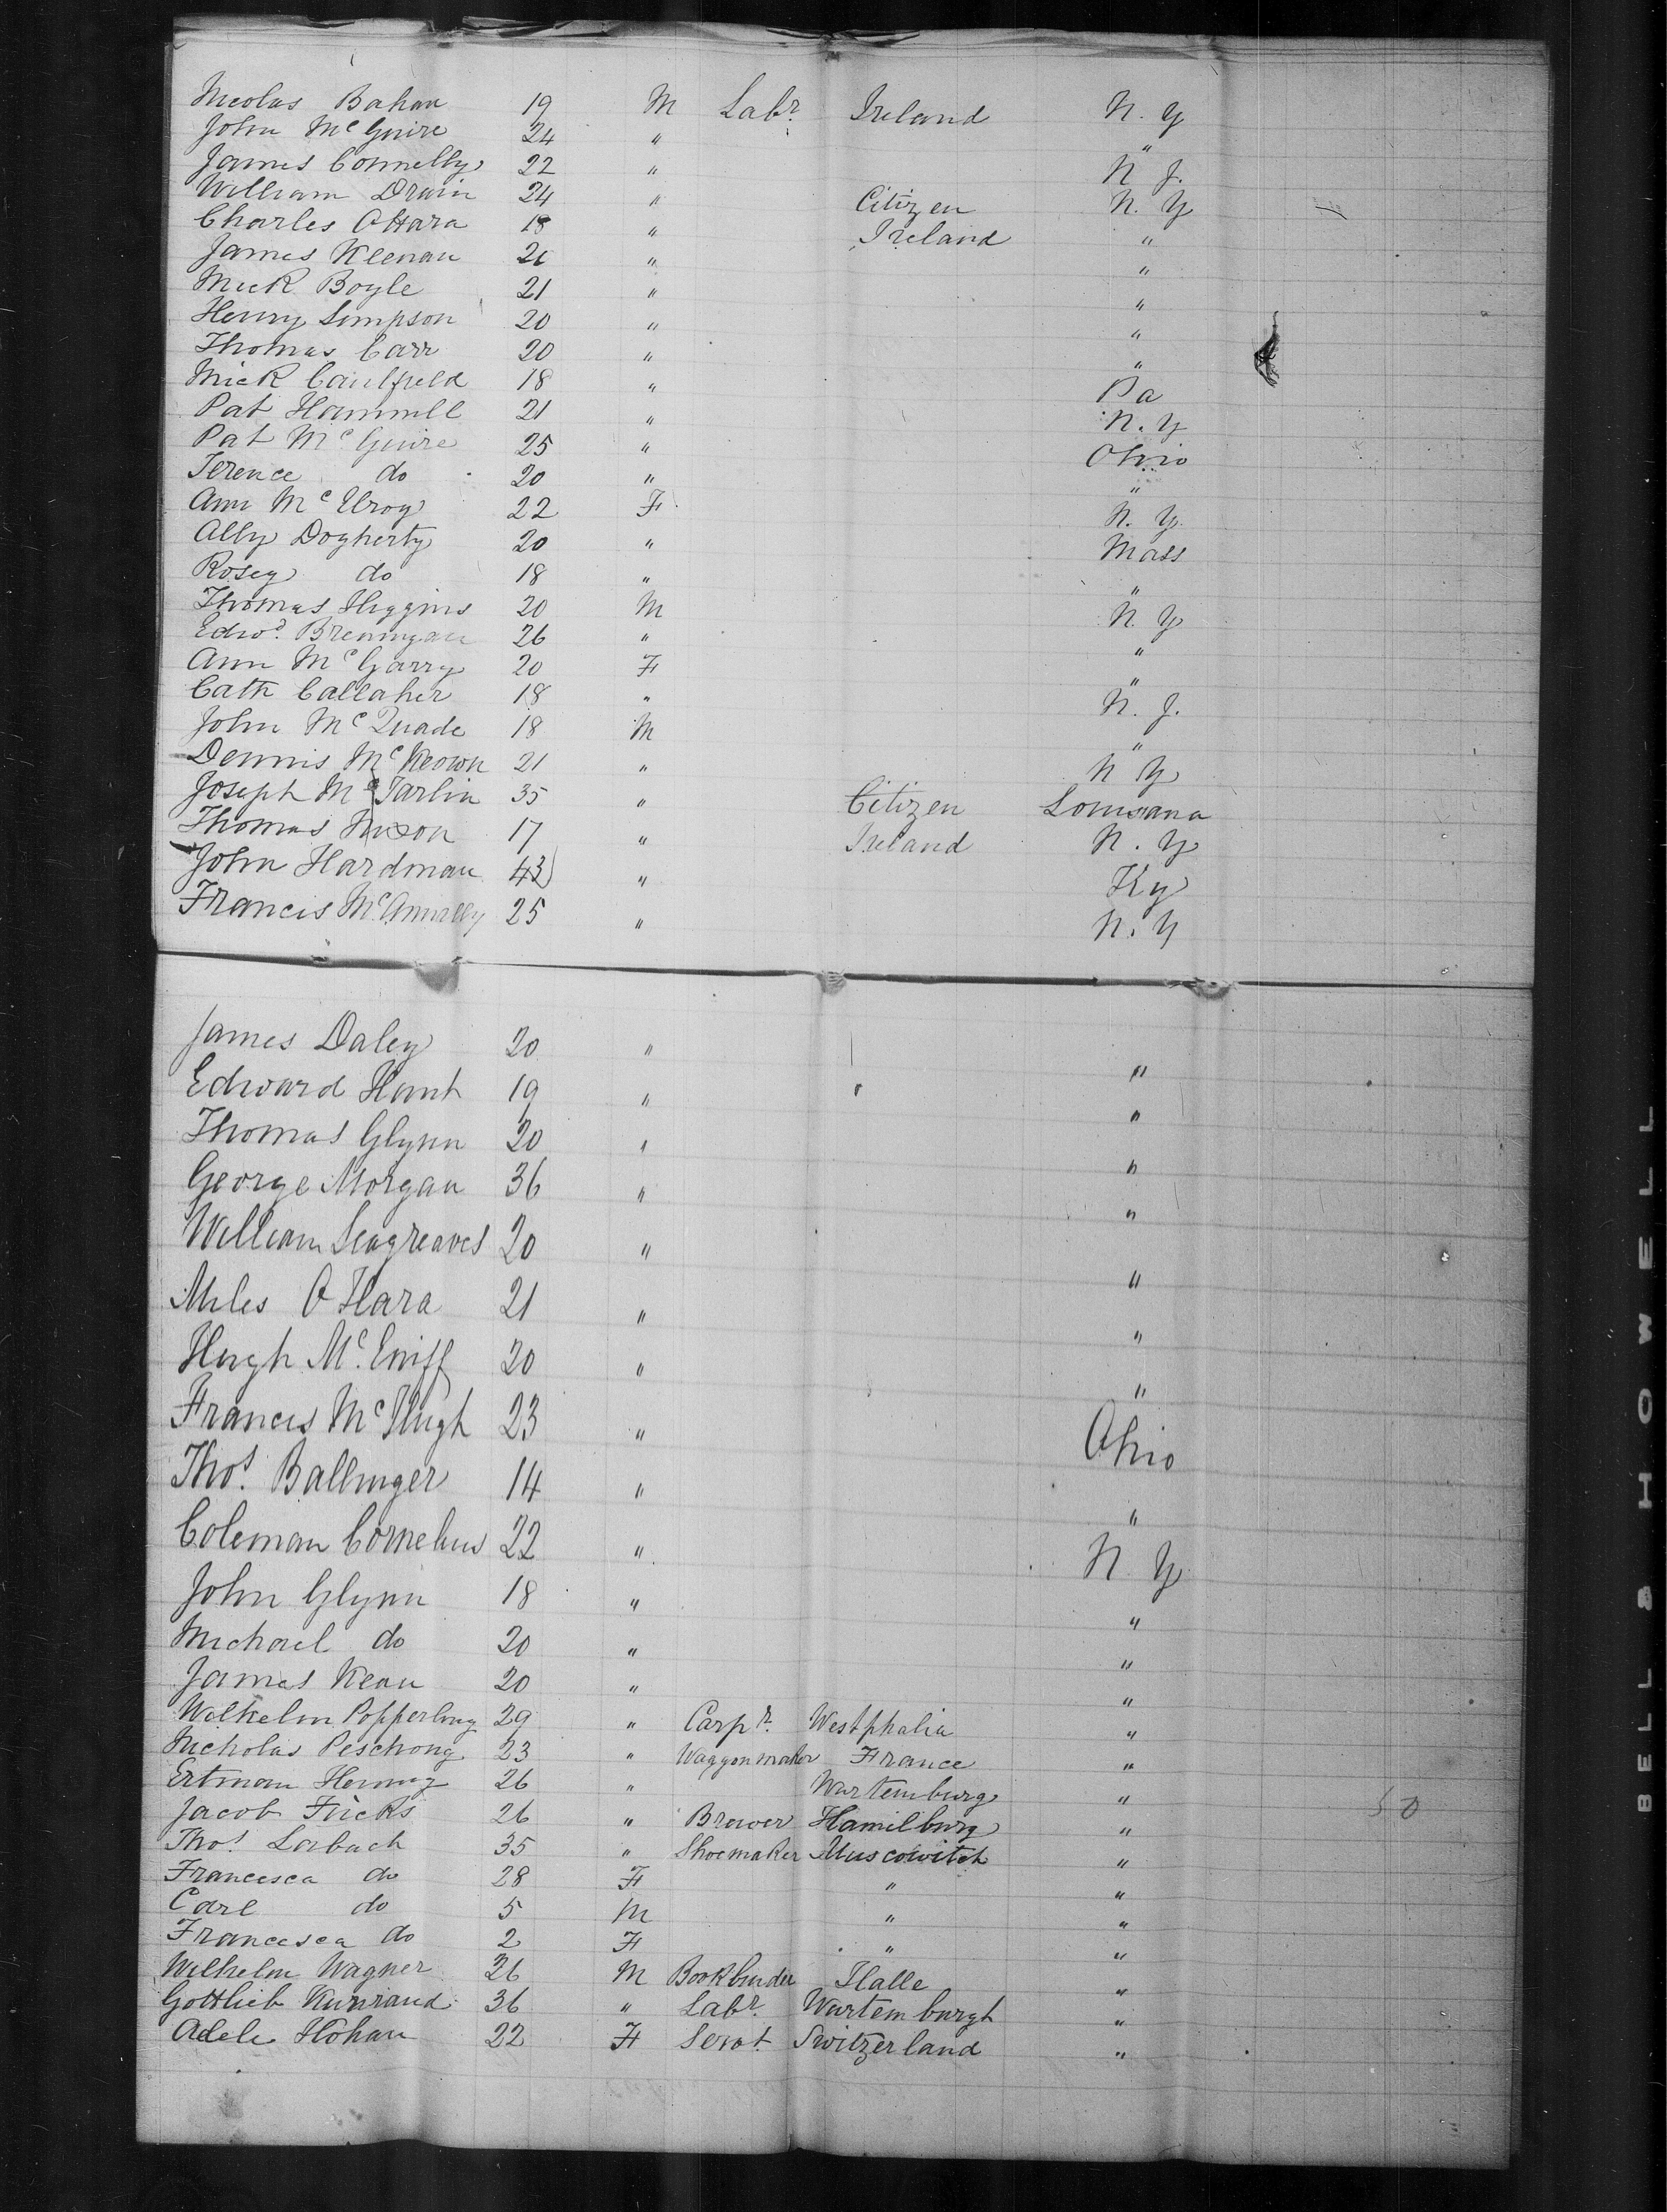 Nicolas Bahan 19 M Labr. Ireland N. Y
John McGuire 24 " "
James Connelly 22 " N J.
William Drain 24 " Citizen N. Y
Charles OHara 18 " Ireland "
James Keenan 21 " "
Mick Boyle 21 " "
Henry Simpson 20 " "
Thomas Carr 20 " "
Mick Caulfield 18 " Pa
Pat Hammill 21 " N. Y
Pat McGuire 25 " Ohio
Terence do 20 " "
Ann McElroy 22 F N. Y.
Ally Dogherty 20 " Mass
Rosey do 18 " "
Thomas Higgins 20 M N. Y
Edwd. Brennigan 26 " "
Ann McGarry 20 F "
Cath Callaher 18 " N. J.
John McQuade 18 M "
Dennis McKeown 21 " N Y
Joseph McTarlin 35 " Citizen Louisana
Thomas Nixon 17 " Ireland N. Y
John Hardman 43 " Ky
Francis McAnnally 25 " N. Y
James Daley 20 " "
Edward Hant 19 " "
Thomas Glynn 20 " "
George Morgan 36 " "
William Seagreaves 20 " "
Miles O Hara 21 " "
Hugh Mc.Eniff 20 " "
Francis McHugh 23 " Ohio
Thos. Ballinger 14 " "
Coleman Cornelius 22 " N Y
John Glynn 18 " "
Michael do 20 " "
James Kean 20 " "
Wilhelm Popperling 29 " Carpr. Westphalia "
Nicholas Peschong 23 " Waggonmaker France "
Ertman Henning 26 " Wurtemburg "
Jacob Fücks 26 " Brewer Hamilburg "
Thos. Lorbach 35 " Shoemaker Muscowitch "
Francesca do 28 F " "
Carl do 5 M " "
Francesca do 2 F " "
Wilhelm Wagner 26 M Bookbinder Halle "
Gottlieb Kunraud 36 " Labr. Wurtemburgh "
Adele Hohan 22 F Servt. Switzerland "
50
BELL & HOWELL